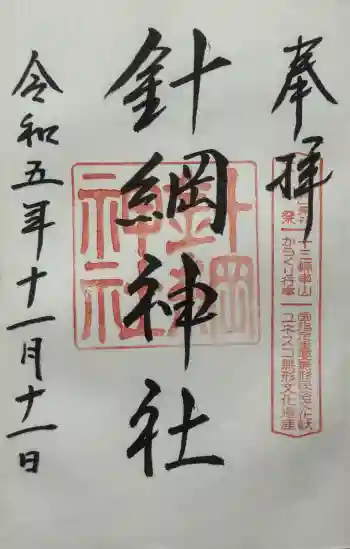 奉拝
十三輌車山
祭
からくり行事
国指定重要無形民俗文化財
ユネスコ無形文化遺産
針綱神社
針綱
神社
令和五年十一月十一日